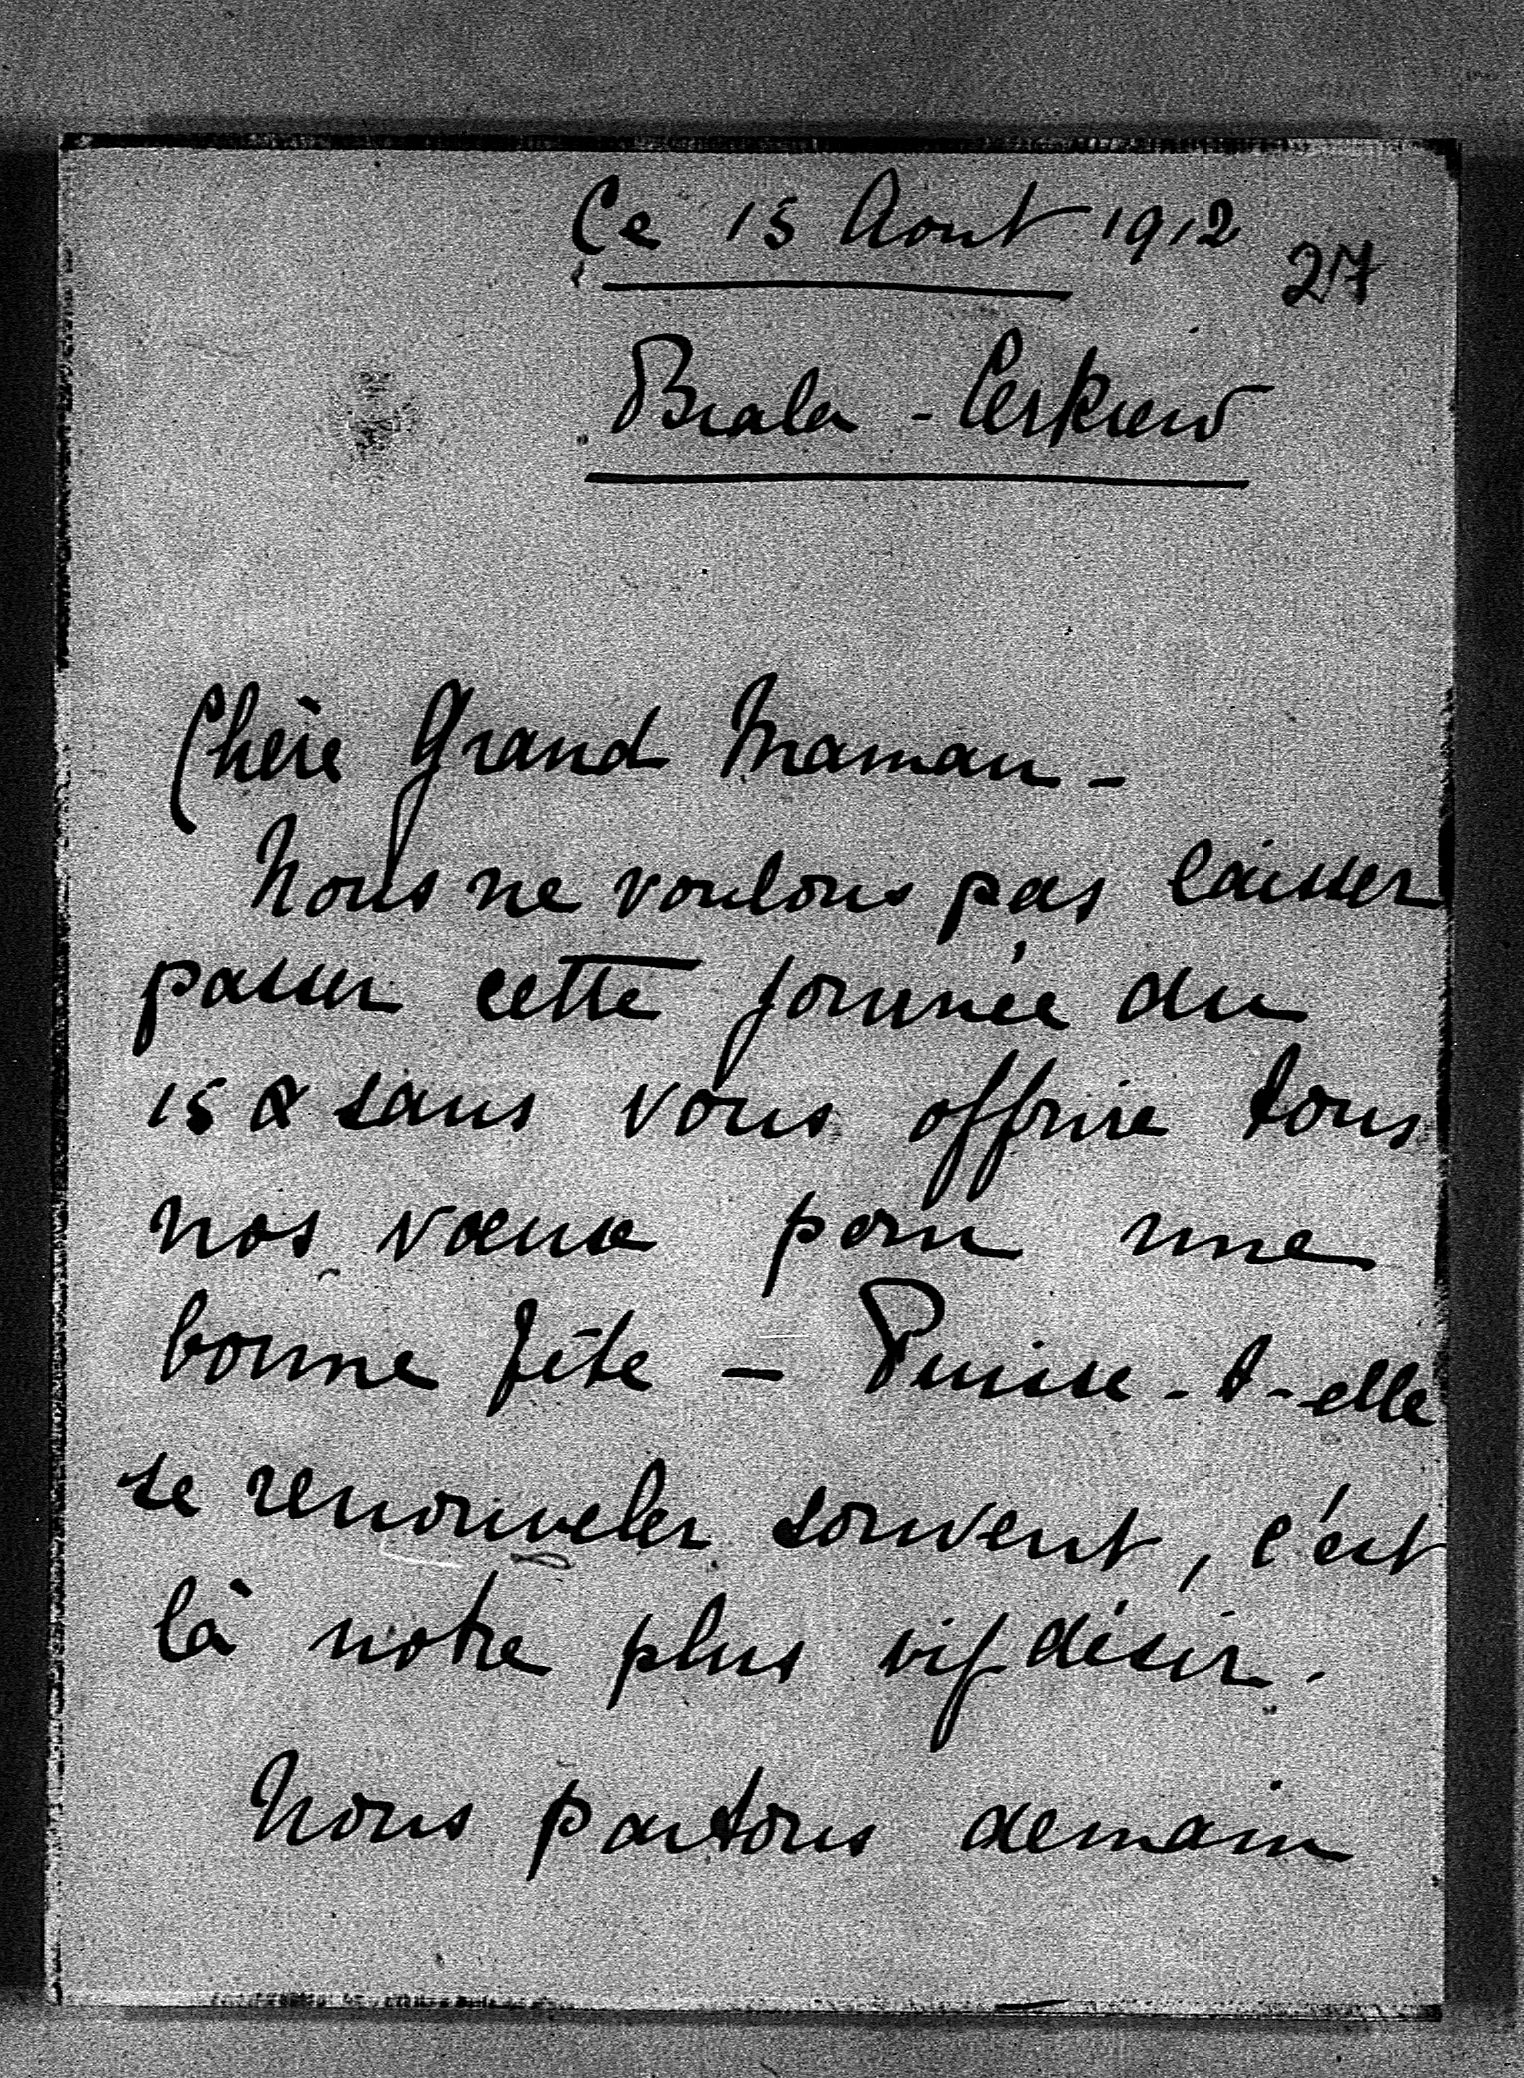 Ce 15 Aout 1912
27
Biala - Cerkiew
Chère Grand Maman -
Nous ne voulons pas laisser
passer cette journée du
15 A sans vous offrire tous
nos vœux pour une
bonne fête - Puisse-t-elle
se renouveler souvent, c'est
là notre plus vif désir.
Nous partons demain